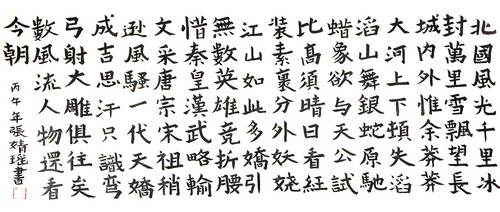 北國風光千里冰
封萬里雪飄望長
城内外惟余莽莽
大河上下頓失滔
滔山舞銀蛇原馳
蜡象欲与天公試
比高須晴日看紅
装素裹分外妖娆
江山如此多嬌引
無數英雄竞折腰
惜秦皇漢武略輸
文采唐宗宋祖稍
逊風騷一代天嬌
成吉思汗只識弯
弓射大雕俱往矣
數風流人物還看
今朝
丙午年張婧瑶書